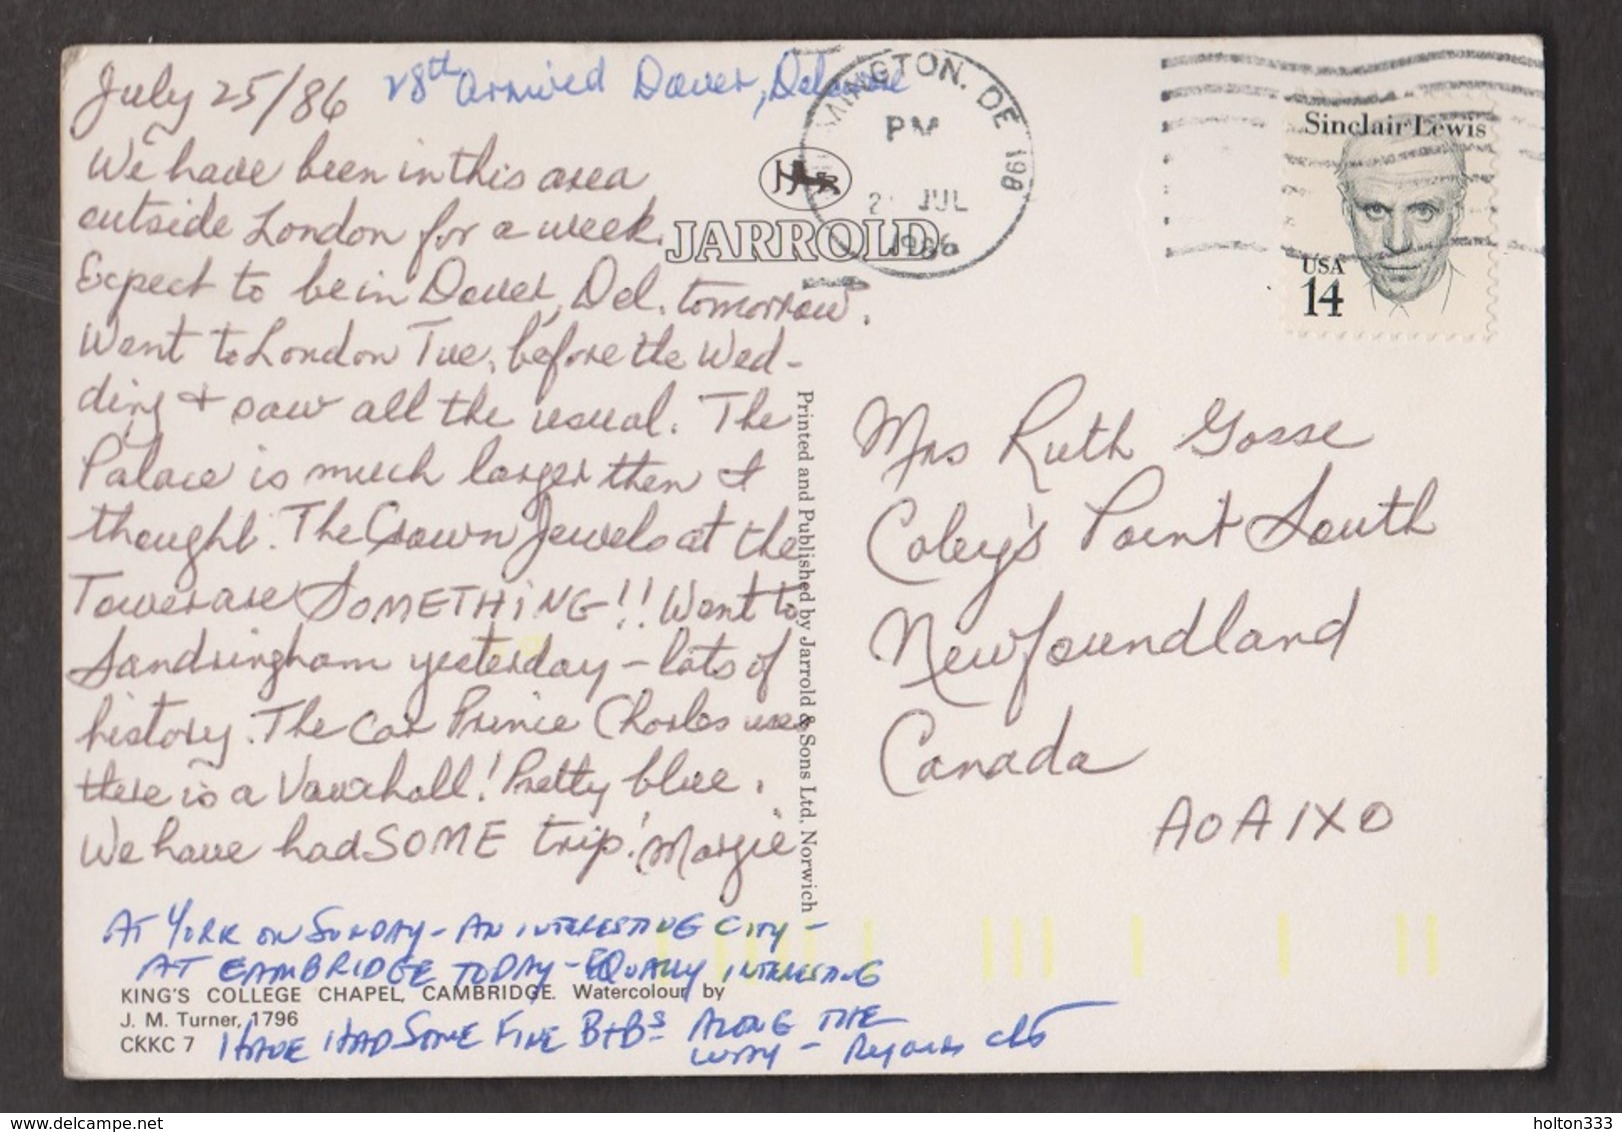 July 25/86 28th arrived Dover, Delaware
We have been in this area
outside London for a week.
Expect to be in Dover, Del. tomorrow.
Went to London Tue, before the Wed-
ding + saw all the usual. The
Palace is much larger then I
thought. The Crown Jewels at the
Tower are SOMETHING!! Went to
Sandringham yesterday – lots of
history. The car Prince Charles uses
there is a Vauxhall! Pretty blue.
We have had SOME trip! Margie
AT YORK ON SUNDAY – AN INTERESTING CITY –
AT CAMBRIDGE TODAY – EQUALLY INTERESTING
I HAVE HAD SOME FINE B+Bs ALONG THE
WAY – Regards
KING'S COLLEGE CHAPEL, CAMBRIDGE. Watercolour by
J. M. Turner, 1796
CKKC 7
JARROLD
Printed and Published by Jarrold & Sons Ltd. Norwich
MINGTON, DE 198
PM
2 JUL
1986
Sinclair Lewis
USA
14
Mrs Ruth Gosse
Coley's Point South
Newfoundland
Canada
A0A 1X0
holton333